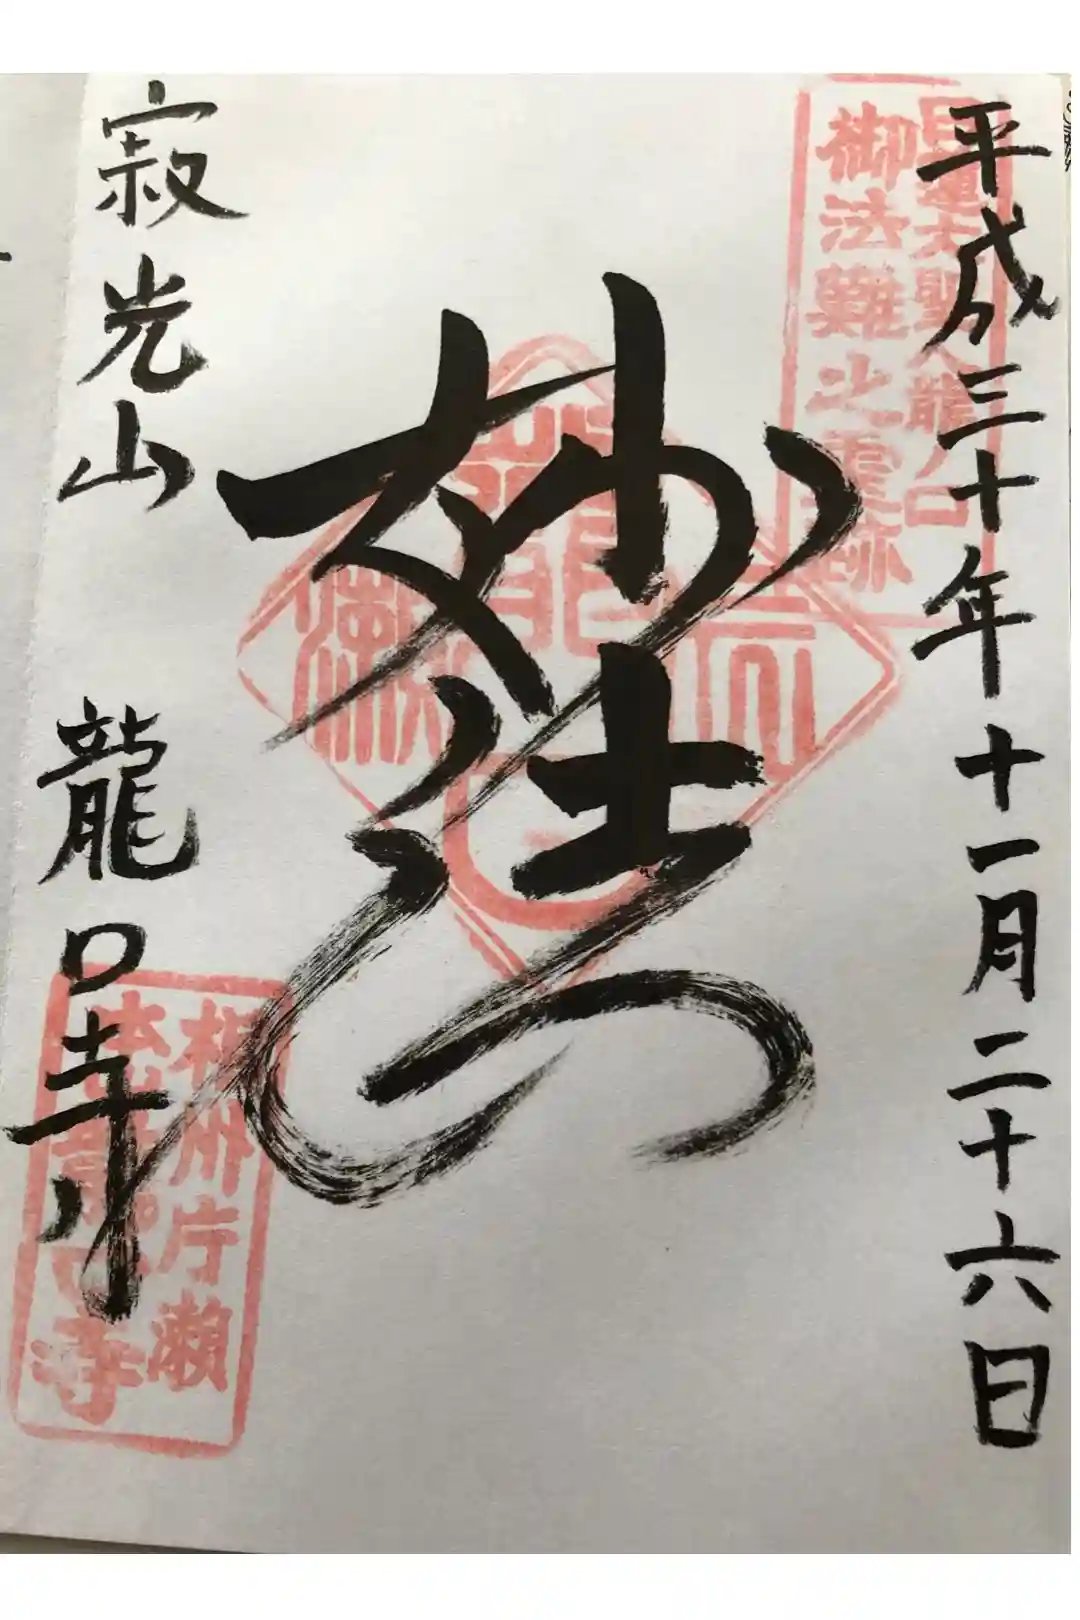 平成三十年十一月二十六日
日蓮大聖人龍ノ口
御法難之霊跡
妙法
寂光山 龍口寺
相州片瀬